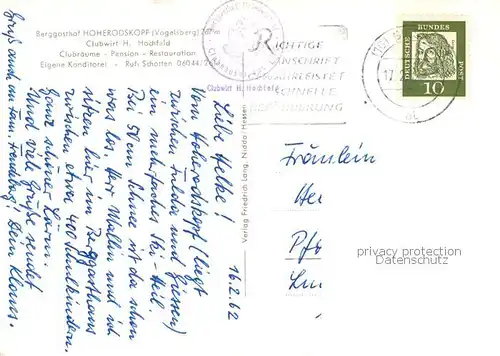 Berggasthof HOHERODSKOPF (Vogelsberg)
Clubwirt H. Hochfeld
Clubräume - Pension - Restauration
Eigene Konditorei - Ruf: Schotten 06044/2
Clubwirt H. Hochfeld
RICHTIGE
ANSCHRIFT
GEWÄHRLEISTET
SCHNELLE
BEFÖRDERUNG
17.2
DEUTSCHE BUNDES POST
10
Verlag Friedrich Lang, Nidda/Hessen
16.2.62
Liebe Helke!
Vom Hoherodskopf (liegt
zwischen Fulda und Giessen)
ein mehrfaches Ski-Heil.
Bei 50 cm Schnee ist da schon
was los. Herr Wallen und ich
sitzen hier im Berggasthaus
zwischen etwa 40 Skikindern.
Ganz schöner Lärm.
Und viele Grüße sendet
Dein Klaus.
Gruß auch an Fam. Freudling!
Fräulein
He
Pf
privacy protection
Datenschutz